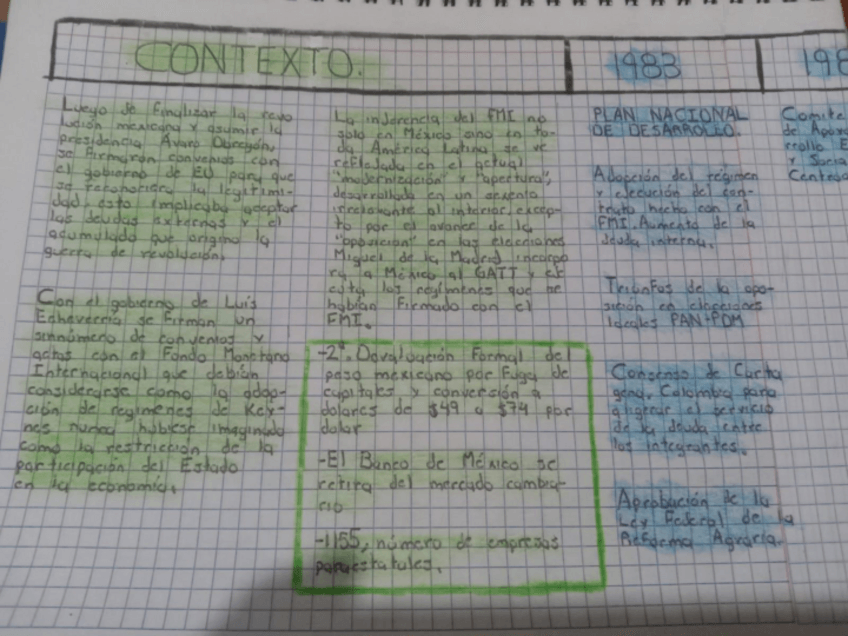 CONTEXTO.
Luego de finalizar la revo
lución mexicana y asumir la
presidencia Alvaro Obregón,
se firmaron convenios con
el gobierno de EU para que
se reconociera la legitimi-
dad, esto implicaba aceptar
las deudas externas y el
acumulado que origino la
guerra de revolución.
Con el gobierno de Luis
Echeverría se firman un
sinnúmero de convenios y
actas con el Fondo Monetario
Internacional que debían
considerarse como la adop-
ción de regimenes de Key-
nes nunca hubiese imaginado
como la restricción de la
participación del Estado
en la economía.
La injerencia del FMI no
solo en México sino en to-
da América Latina se ve
reflejada en el actual
"modernización" y "apertura",
desarrollada en un
irrelevante al interior, excep-
to por el avance de la
"oposición" en las elecciones
Miguel de la Madrid incorpo
ra a México al GATT y
los regímenes que se
habían firmado con el
FMI.
-2ª. Devaluación Formal del
peso mexicano por fuga de
capitales y conversión a
dolares de $49 a $74 por
dolar
-El Banco de México se
retira del mercado cambia-
rio
-1155, número de empresas
paraestatales.
1983
PLAN NACIONAL
DE DESARROLLO.
Adopción del régimen
y ejecución del con-
trato hecho con el
FMI. Aumento de la
deuda interna.
Triunfos de la opo-
sición en elecciones
locales PAN-PDM
Consenso de Carta
gena, Colombia para
aligerar el servicio
de la deuda entre
los integrantes.
Aprobación de la
Ley Federal de la
Reforma Agraria.
198
Comite
de Apoyo
rrollo E
y Socia